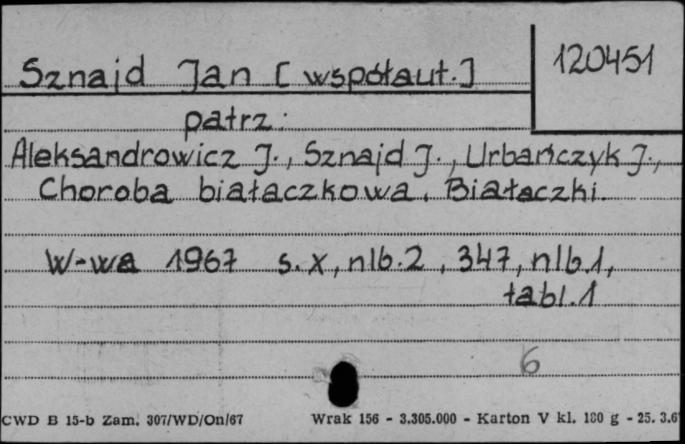 120451
Sznajd Jan [ współaut.]
patrz:
Aleksandrowicz J., Sznajd J., Urbańczyk J.,
Choroba białaczkowa. Białaczki.
W-wa 1967 s. x, nlb.2, 347, nlb.1,
tabl.1
6
CWD B 15-b Zam. 307/WD/On/67 Wrak 156 - 3.305.000 - Karton V kl. 180 g - 25. 3.6